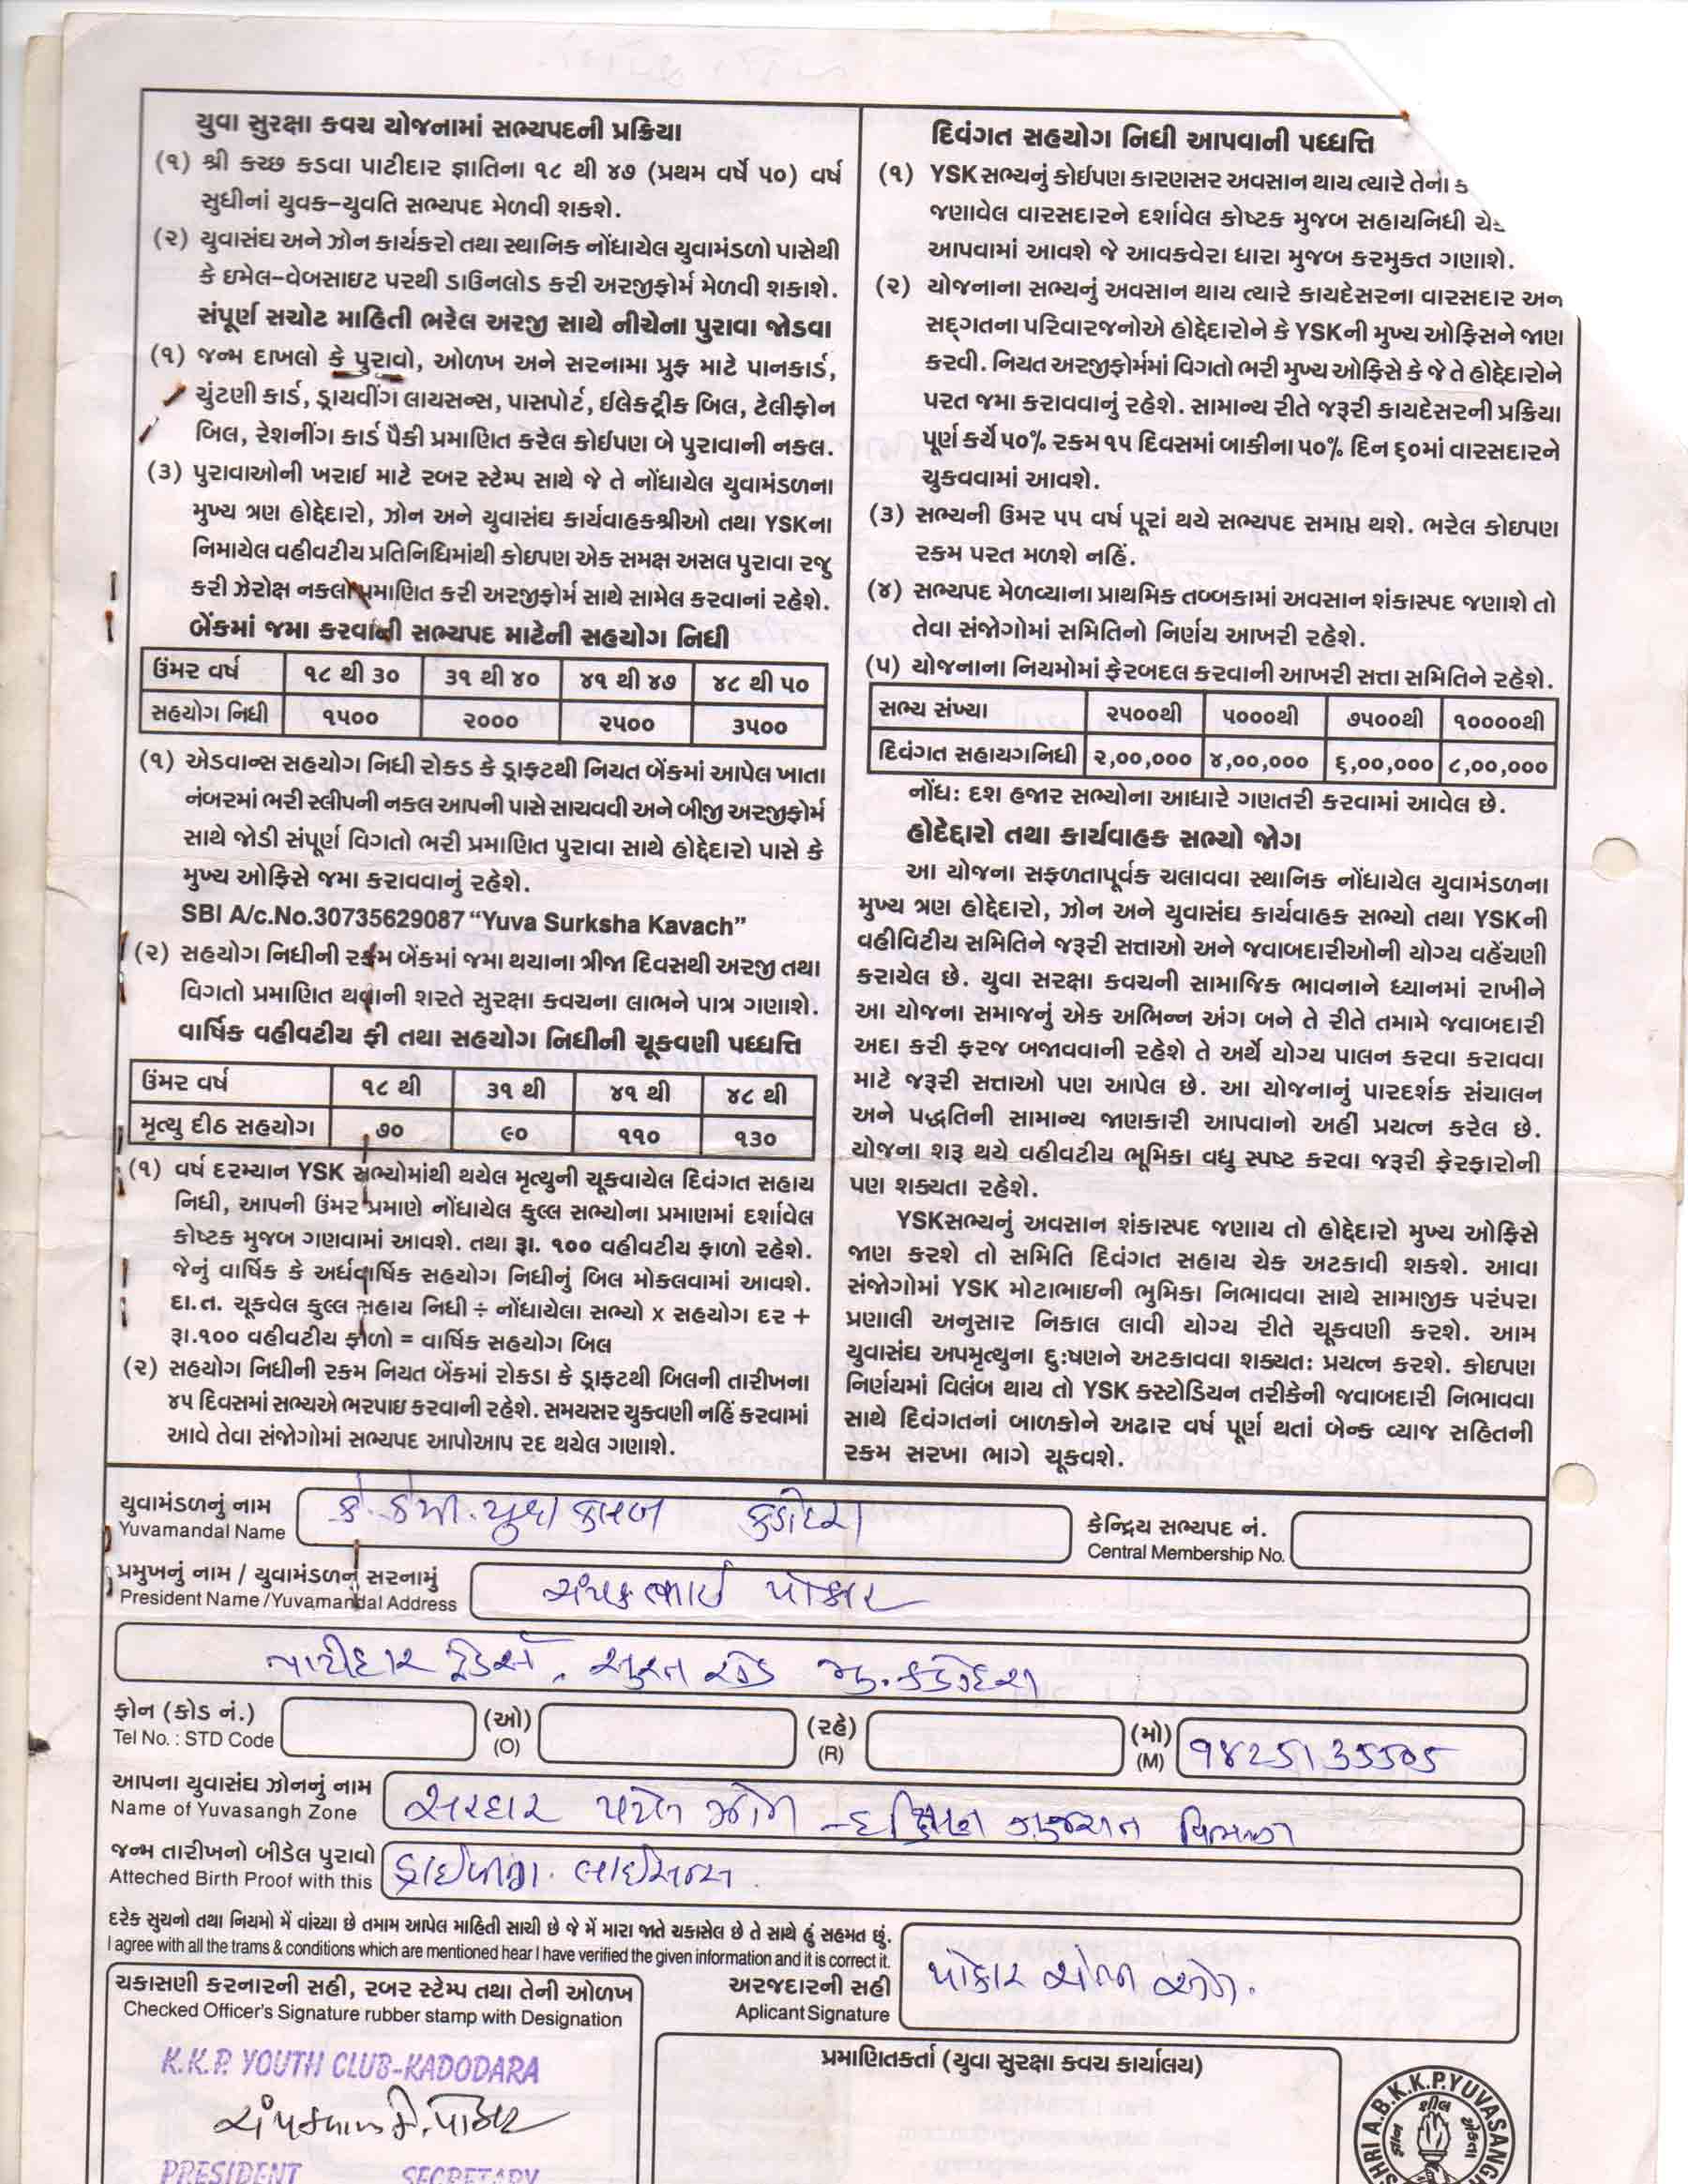 યુવા સુરક્ષા કવચ યોજનામાં સભ્યપદની પ્રક્રિયા
(૧) શ્રી કચ્છ કડવા પાટીદાર જ્ઞાતિના ૧૮ થી ૪૭ (પ્રથમ વર્ષે ૫૦) વર્ષ
સુધીનાં યુવક-યુવતિ સભ્યપદ મેળવી શકશે.
(૨) યુવાસંઘ અને ઝોન કાર્યકરો તથા સ્થાનિક નોંધાયેલ યુવામંડળો પાસેથી
કે ઇમેલ-વેબસાઇટ પરથી ડાઉનલોડ કરી અરજીફોર્મ મેળવી શકાશે.
સંપૂર્ણ સચોટ માહિતી ભરેલ અરજી સાથે નીચેના પુરાવા જોડવા
(૧) જન્મ દાખલો કે પુરાવો, ઓળખ અને સરનામા પ્રુફ માટે પાનકાર્ડ,
ચુંટણી કાર્ડ, ડ્રાયવીંગ લાયસન્સ, પાસપોર્ટ, ઈલેક્ટ્રીક બિલ, ટેલીફોન
બિલ, રેશનીંગ કાર્ડ પૈકી પ્રમાણિત કરેલ કોઈપણ બે પુરાવાની નકલ.
(૩) પુરાવાઓની ખરાઈ માટે રબર સ્ટેમ્પ સાથે જે તે નોંધાયેલ યુવામંડળના
મુખ્ય ત્રણ હોદ્દેદારો, ઝોન અને યુવાસંઘ કાર્યવાહકશ્રીઓ તથા YSKના
નિમાયેલ વહીવટીય પ્રતિનિધિમાંથી કોઇપણ એક સમક્ષ અસલ પુરાવા રજુ
કરી ઝેરોક્ષ નકલો પ્રમાણિત કરી અરજીફોર્મ સાથે સામેલ કરવાનાં રહેશે.
બેંકમાં જમા કરવાની સભ્યપદ માટેની સહયોગ નિધી
ઉંમર વર્ષ ૧૮ થી ૩૦ ૩૧ થી ૪૦ ૪૧ થી ૪૭ ૪૮ થી ૫૦
સહયોગ નિધી ૧૫૦૦ ૨૦૦૦ ૨૫૦૦ ૩૫૦૦
(૧) એડવાન્સ સહયોગ નિધી રોકડ કે ડ્રાફટથી નિયત બેંકમાં આપેલ ખાતા
નંબરમાં ભરી સ્લીપની નકલ આપની પાસે સાચવવી અને બીજી અરજીફોર્મ
સાથે જોડી સંપૂર્ણ વિગતો ભરી પ્રમાણિત પુરાવા સાથે હોદ્દેદારો પાસે કે
મુખ્ય ઓફિસે જમા કરાવવાનું રહેશે.
SBI A/c.No.30735629087 “Yuva Surksha Kavach”
(૨) સહયોગ નિધીની રકમ બેંકમાં જમા થયાના ત્રીજા દિવસથી અરજી તથા
વિગતો પ્રમાણિત થવાની શરતે સુરક્ષા કવચના લાભને પાત્ર ગણાશે.
વાર્ષિક વહીવટીય ફી તથા સહયોગ નિધીની ચૂકવણી પધ્ધતિ
ઉંમર વર્ષ ૧૮ થી ૩૧ થી ૪૧ થી ૪૮ થી
મૃત્યુ દીઠ સહયોગ ૭૦ ૯૦ ૧૧૦ ૧૩૦
(૧) વર્ષ દરમ્યાન YSK સભ્યોમાંથી થયેલ મૃત્યુની ચૂકવાયેલ દિવંગત સહાય
નિધી, આપની ઉંમર પ્રમાણે નોંધાયેલ કુલ્લ સભ્યોના પ્રમાણમાં દર્શાવેલ
કોષ્ટક મુજબ ગણવામાં આવશે. તથા રૂા. ૧૦૦ વહીવટીય ફાળો રહેશે.
જેનું વાર્ષિક કે અર્ધવાર્ષિક સહયોગ નિધીનું બિલ મોકલવામાં આવશે.
દા.ત. ચૂકવેલ કુલ્લ સહાય નિધી ÷ નોંધાયેલા સભ્યો x સહયોગ દર +
રૂા.૧૦૦ વહીવટીય ફાળો = વાર્ષિક સહયોગ બિલ
(૨) સહયોગ નિધીની રકમ નિયત બેંકમાં રોકડા કે ડ્રાફટથી બિલની તારીખના
૪૫ દિવસમાં સભ્યએ ભરપાઇ કરવાની રહેશે. સમયસર ચુકવણી નહિં કરવામાં
આવે તેવા સંજોગોમાં સભ્યપદ આપોઆપ રદ થયેલ ગણાશે.
દિવંગત સહયોગ નિધી આપવાની પધ્ધત્તિ
(૧) YSKસભ્યનું કોઈપણ કારણસર અવસાન થાય ત્યારે તેના
જણાવેલ વારસદારને દર્શાવેલ કોષ્ટક મુજબ સહાયનિધી
આપવામાં આવશે જે આવકવેરા ધારા મુજબ કરમુક્ત ગણાશે.
(૨) યોજનાના સભ્યનું અવસાન થાય ત્યારે કાયદેસરના વારસદાર અન
સદ્ગતના પરિવારજનોએ હોદ્દેદારોને કે YSKની મુખ્ય ઓફિસને જાણ
કરવી. નિયત અરજીફોર્મમાં વિગતો ભરી મુખ્ય ઓફિસે કે જે તે હોદ્દેદારોને
પરત જમા કરાવવાનું રહેશે. સામાન્ય રીતે જરૂરી કાયદેસરની પ્રક્રિયા
પૂર્ણ કર્યે ૫૦% રકમ ૧૫ દિવસમાં બાકીના ૫૦% દિન ૬૦માં વારસદારને
ચુકવવામાં આવશે.
(૩) સભ્યની ઉમર ૫૫ વર્ષ પૂરાં થયે સભ્યપદ સમાપ્ત થશે. ભરેલ કોઇપણ
રકમ પરત મળશે નહિં.
(૪) સભ્યપદ મેળવ્યાના પ્રાથમિક તબ્બકામાં અવસાન શંકાસ્પદ જણાશે તો
તેવા સંજોગોમાં સમિતિનો નિર્ણય આખરી રહેશે.
(૫) યોજનાના નિયમોમાં ફેરબદલ કરવાની આખરી સત્તા સમિતિને રહેશે.
સભ્ય સંખ્યા ૨૫૦૦થી ૫૦૦૦થી ૭૫૦૦થી ૧૦૦૦૦થી
દિવંગત સહાયગનિધી ૨,૦૦,૦૦૦ ૪,૦૦,૦૦૦ ૬,૦૦,૦૦૦ ૮,૦૦,૦૦૦
નોંધ: દશ હજાર સભ્યોના આધારે ગણતરી કરવામાં આવેલ છે.
હોદેદ્દારો તથા કાર્યવાહક સભ્યો જોગ
આ યોજના સફળતાપૂર્વક ચલાવવા સ્થાનિક નોંધાયેલ યુવામંડળના
મુખ્ય ત્રણ હોદ્દેદારો, ઝોન અને યુવાસંઘ કાર્યવાહક સભ્યો તથા YSKની
વહીવિટીય સમિતિને જરૂરી સત્તાઓ અને જવાબદારીઓની યોગ્ય વહેંચણી
કરાયેલ છે. યુવા સરક્ષા કવચની સામાજિક ભાવનાને ધ્યાનમાં રાખીને
આ યોજના સમાજનું એક અભિન્ન અંગ બને તે રીતે તમામે જવાબદારી
અદા કરી ફરજ બજાવવાની રહેશે તે અર્થે યોગ્ય પાલન કરવા કરાવવા
માટે જરૂરી સત્તાઓ પણ આપેલ છે. આ યોજનાનું પારદર્શક સંચાલન
અને પદ્ધતિની સામાન્ય જાણકારી આપવાનો અહીં પ્રયત્ન કરેલ છે.
યોજના શરૂ થયે વહીવટીય ભૂમિકા વધુ સ્પષ્ટ કરવા જરૂરી ફેરફારોની
પણ શક્યતા રહેશે.
YSKસભ્યનું અવસાન શંકાસ્પદ જણાય તો હોદ્દેદારો મુખ્ય ઓફિસે
જાણ કરશે તો સમિતિ દિવંગત સહાય ચેક અટકાવી શકશે. આવા
સંજોગોમાં YSK મોટાભાઇની ભુમિકા નિભાવવા સાથે સામાજીક પરંપરા
પ્રણાલી અનુસાર નિકાલ લાવી યોગ્ય રીતે ચૂકવણી કરશે. આમ
યુવાસંઘ અપમૃત્યુના દુ:ષણને અટકાવવા શક્યત: પ્રયત્ન કરશે. કોઇપણ
નિર્ણયમાં વિલંબ થાય તો YSK કસ્ટોડિયન તરીકેની જવાબદારી નિભાવવા
સાથે દિવંગતનાં બાળકોને અઢાર વર્ષ પૂર્ણ થતાં બેન્ક વ્યાજ સહિતની
રકમ સરખા ભાગે ચૂકવશે.
યુવામંડળનું નામ
Yuvamandal Name
કડોદરા
કેન્દ્રિય સભ્યપદ નં.
Central Membership No.
પ્રમુખનું નામ / યુવામંડળનું સરનામું
President Name/Yuvamandal Address
ચંપકભાઈ પોકાર
પાટીદાર ટ્રેડર્સ, સુરત રોડ મુ.કડોદરા
ફોન (કોડ નં.) (ઓ) (રહે) (મો)
Tel No. : STD Code (O) (R) (M)
૧૪25135505
આપના યુવાસંઘ ઝોનનું નામ
Name of Yuvasangh Zone
સરદાર પટેલ ઝોન - દક્ષિણ ગુજરાત વિભાગ
જન્મ તારીખનો બીડેલ પુરાવો
Atteched Birth Proof with this
ડ્રાઈવીંગ. લાઈસન્સ.
દરેક સુચનો તથા નિયમો મેં વાંચ્યા છે તમામ આપેલ માહિતી સાચી છે જે મેં મારા જાતે ચકાસેલ છે તે સાથે હું સહમત છું.
I agree with all the trams & conditions which are mentioned hear I have verified the given information and it is correct it.
ચકાસણી કરનારની સહી, રબર સ્ટેમ્પ તથા તેની ઓળખ
Checked Officer's Signature rubber stamp with Designation
અરજદારની સહી
Aplicant Signature
પોકાર
K.K.P. YOUTH CLUB-KADODARA
PRESIDENT SECRETARY
પ્રમાણિતકર્તા (યુવા સુરક્ષા કવચ કાર્યાલય)
SHRI A.B.K.K.P.YUVASANGH